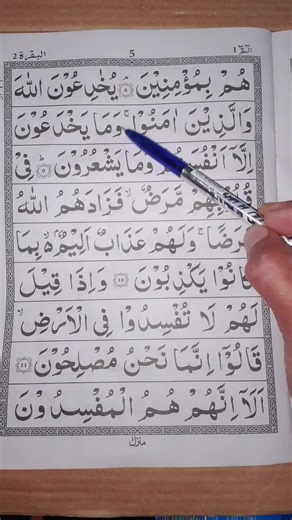 البقرة ٢ 5 الٓمّٓ ١
هُمۡ بِمُؤۡمِنِيۡنَ ۘ‏ ﴿۸﴾ يُخٰدِعُوۡنَ اللّٰهَ
وَالَّذِيۡنَ اٰمَنُوۡا ۚ وَمَا يَخۡدَعُوۡنَ
اِلَّاۤ اَنۡفُسَهُمۡ وَمَا يَشۡعُرُوۡنَ ؕ‏ ﴿۹﴾ فِىۡ
قُلُوۡبِهِمۡ مَّرَضٌ ۙ فَزَادَهُمُ اللّٰهُ
مَرَضًا ۚ وَلَهُمۡ عَذَابٌ اَلِيۡمٌۢ ۙ بِمَا
كَانُوۡا يَكۡذِبُوۡنَ ﴿10﴾ وَاِذَا قِيۡلَ
لَهُمۡ لَا تُفۡسِدُوۡا فِى الۡاَرۡضِ ۙ
قَالُوۡاۤ اِنَّمَا نَحۡنُ مُصۡلِحُوۡنَ ﴿11﴾
اَلَاۤ اِنَّهُمۡ هُمُ الۡمُفۡسِدُوۡنَ
منزل